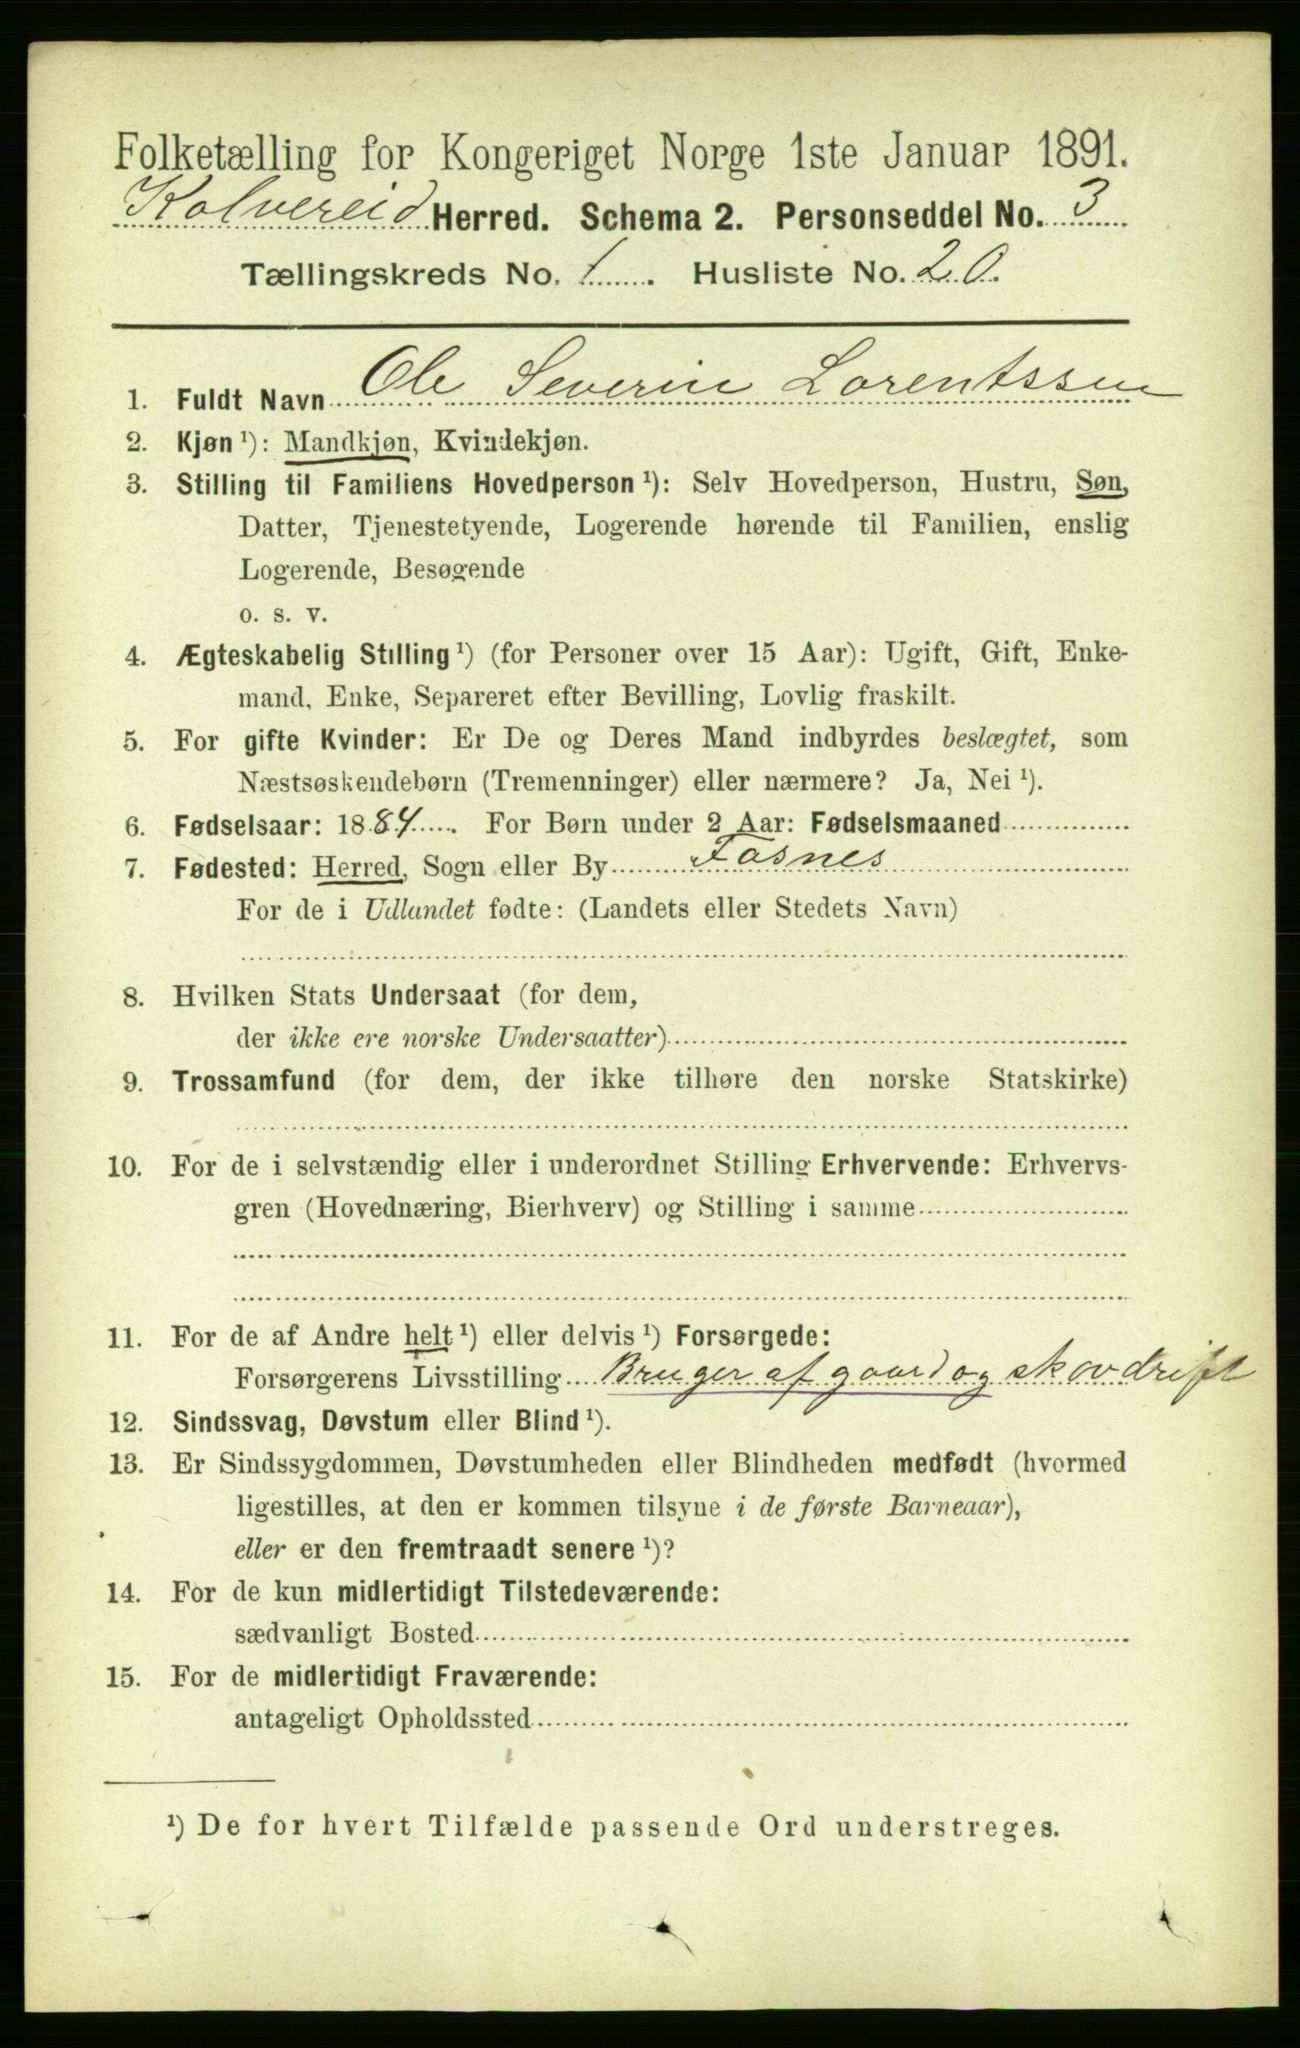 Folketælling for Kongeriget Norge 1ste Januar 1891.
Kolvereid Herred. Schema 2. Personseddel No. 3
Tællingskreds No. 1. Husliste No. 20.
1. Fuldt Navn Ole Severin Lorentssen
2. Kjøn ¹): Mandkjøn, Kvindekjøn.
3. Stilling til Familiens Hovedperson ¹): Selv Hovedperson, Hustru, Søn,
Datter, Tjenestetyende, Logerende hørende til Familien, enslig
Logerende, Besøgende
o. s. v.
4. Ægteskabelig Stilling ¹) (for Personer over 15 Aar): Ugift, Gift, Enke-
mand, Enke, Separeret efter Bevilling, Lovlig fraskilt.
5. For gifte Kvinder: Er De og Deres Mand indbyrdes beslægtet, som
Næstsøskendebørn (Tremenninger) eller nærmere? Ja, Nei ¹).
6. Fødselsaar: 1884. For Børn under 2 Aar: Fødselsmaaned
7. Fødested: Herred, Sogn eller By Fosnes
For de i Udlandet fødte: (Landets eller Stedets Navn)
8. Hvilken Stats Undersaat (for dem,
der ikke ere norske Undersaatter)
9. Trossamfund (for dem, der ikke tilhøre den norske Statskirke)
10. For de i selvstændig eller i underordnet Stilling Erhvervende: Erhvervs-
gren (Hovednæring, Bierhverv) og Stilling i samme
11. For de af Andre helt ¹) eller delvis ¹) Forsørgede:
Forsørgerens Livsstilling Bruger af gaard og skovdrift
12. Sindssvag, Døvstum eller Blind ¹).
13. Er Sindssygdommen, Døvstumheden eller Blindheden medfødt (hvormed
ligestilles, at den er kommen tilsyne i de første Barneaar),
eller er den fremtraadt senere ¹)?
14. For de kun midlertidigt Tilstedeværende:
sædvanligt Bosted
15. For de midlertidigt Fraværende:
antageligt Opholdssted
¹) De for hvert Tilfælde passende Ord understreges.